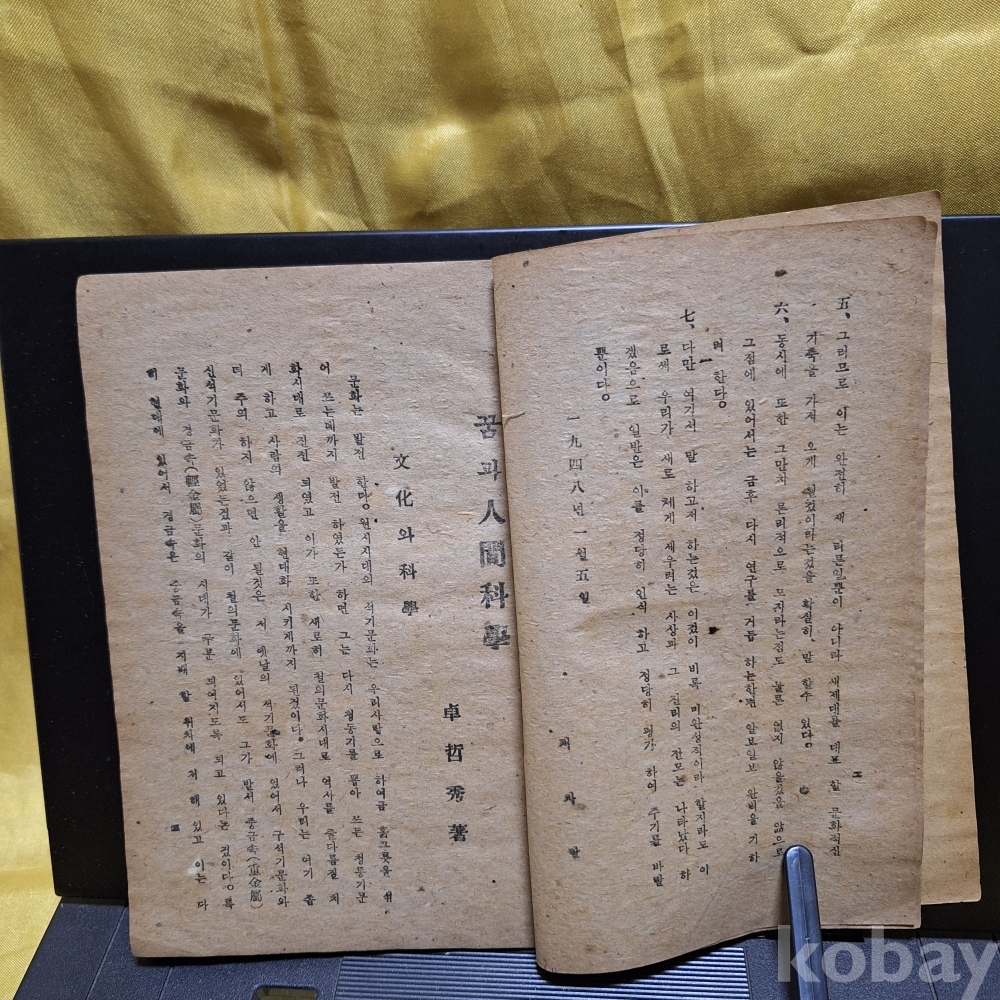 五、그러므로 이는 완전히 새 리론일뿐이 아니라 새제대를 대표 할 문화적인
기축을 가저 오게 될것이라는것을 확실히 말 할수 있다。
六、동시에 또한 그만치 론리적으로 모지라는점도 물론 없지 않을것을 앎으로
그점에 있어서는 금후 다시 연구를 거듭 하는한편 일보일보 완비을 기 하
려 한다。
七、다만 여기서 말 하고저 하는것은 이것이 비록 미완성적이라 할지라도 이
로써 우리가 새로 체게 세우려는 사상과 그 진리의 전모는 나타났다 하
겠음으로 일반은 이를 정당히 인식 하고 정당히 평가 하여 주기를 바랄
뿐이다。
一九四八년一월五일
저 자 말
꿈과人間科學
卓哲秀著
文化와科學
문화는 발전 한다。원시시대의 석기문화는 우리사람으로 하여금 흙그릇을 섞
어 쓰는데까지 발전 하였든가 하면 그는 다시 청동기를 뽑아 쓰는 청동기문
화시대로 진전 되였고 이가 또한 새로히 철의문화시대로 역사를 줄다름질 치
게 하고 사람의 생활을 현대화 시키게까지 된것이다。그러나 우리는 여기 좀
더 주의 하지 않으면 안 될것은 저 옛날의 석기문화에 있어서 구석기문화와
신석기문화가 있었는것과 같이 철의문화에 있어서도 그가 발서 중금속(重金屬)
문화와 경금속(輕金屬)문화의 시대가 구분 되여지도록 되고 있다는 것이다。특
히 현대에 있어서 경금속은 중금속을 지배 할 위치에 처 해 있고 이는 다
kobay